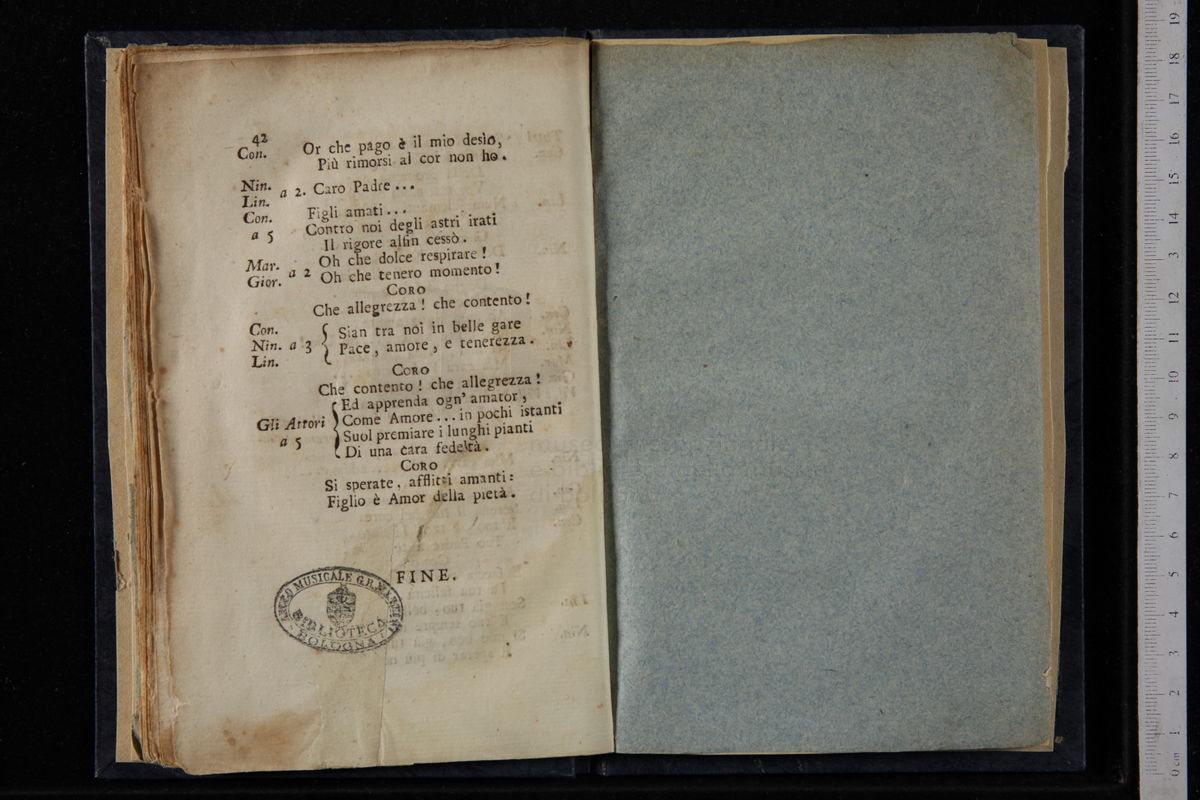 42
Con. Or che pago è il mio desìo,
Più rimorsi al cor non ho.
Nin.
Lin. a 2. Caro Padre...
Con. Figli amati...
a 5 Contro noi degli astri irati
Il rigore alfin cessò.
Mar. Oh che dolce respirare!
Gior. a 2 Oh che tenero momento!
CORO
Che allegrezza! che contento!
Con. Sian tra noi in belle gare
Nin. a 3 Pace, amore, e tenerezza.
Lin.
CORO
Che contento! che allegrezza!
Ed apprenda ogn' amator,
Gli Attori Come Amore... in pochi istanti
a 5 Suol premiare i lunghi pianti
Di una cara fedeltà.
CORO
Si sperate, afflitti amanti:
Figlio è Amor della pietà.
FINE.
MUSICALE G.B. MARTINI
BIBLIOTECA
BOLOGNA
0 cm 1 2 3 4 5 6 7 8 9 10 11 12 13 14 15 16 17 18 19